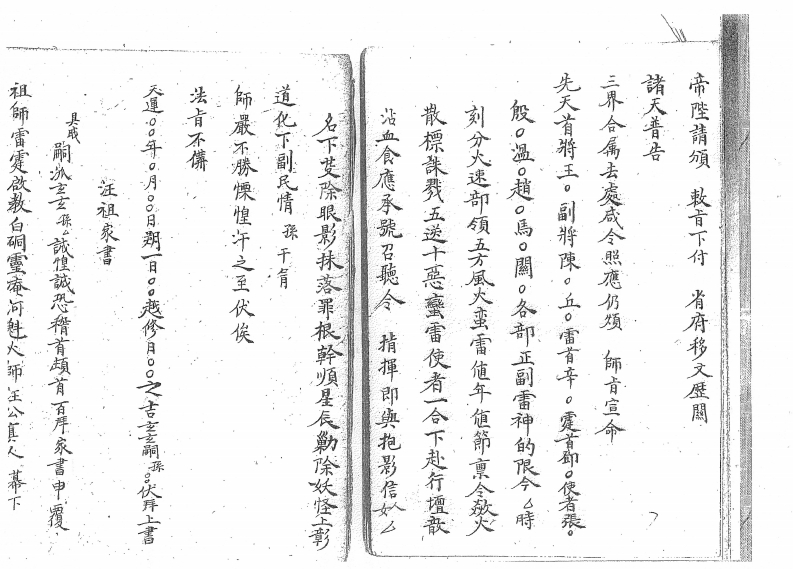 帝陛請頒　敕旨下付　省府移文歷關
諸天普告
三界合属去處咸令照應仍頒　師旨宣命
先天首將王〇副將陳〇丘〇雷首辛〇霆首鄧〇使者張〇
殷〇溫〇趙〇馬〇關〇各部正副雷神的限今厶時
刻分火速部領五方風火蛮雷值年值節禀令欻火
散標誅戮五送十惡蠻雷使者一合下赴行壇歆
沾血食應承號召聽令　指揮即與抱影信如厶
名下芟除眼影抹落罪根幹順星辰勦除妖怪上彰
道化下副民情 孫 干冐
師嚴不勝慄惶汗之至伏俟
法旨不備
天運〇〇年〇月〇〇日朔一日〇〇越修月〇〇之吉玄玄嗣孫〇伏拜上書
汪祖家書
具戒
嗣派玄玄孫厶誠惶誠恐稽首頓首百拜家書申覆
祖師雷霆啟教白硐靈菴河魁火師汪公真人 幕下